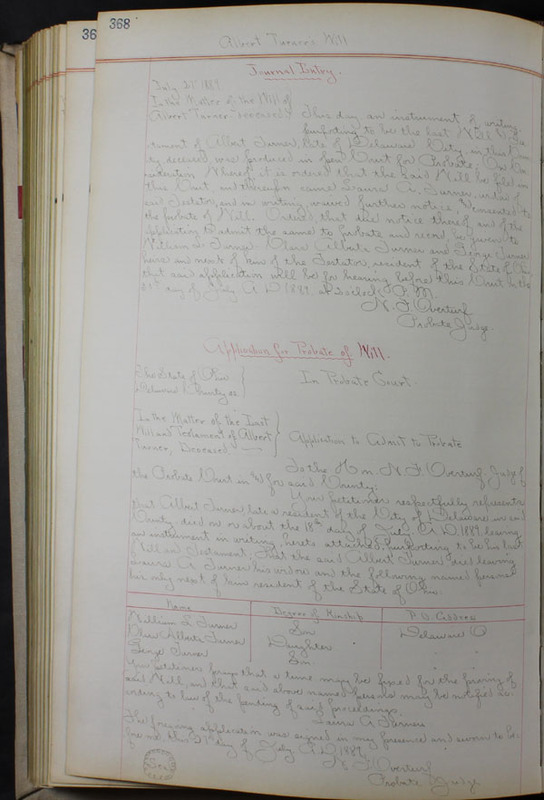 368
Albert Turner's Will
Journal Entry.
July 21st 1889
In the Matter of the Will of
Albert Turner deceased } This day an instrument of writing
purporting to be the last Will & Tes-
tament of Albert Turner, late of Delaware City, in this Coun-
ty deceased was produced in open Court for Probate. On con-
sideration whereof it is ordered that the said Will be filed in
this Court, and thereupon came Laura A. Turner, widow of
said Testator, and in writing waived further notice, & consented to
the probate of Will. Ordered that due notice thereof and of the
application to admit the same to probate and record be given to
William L. Turner Olive Alberta Turner and George Turner
heirs and next of kin of the Testator, resident of the State of Ohio
that said application will be for hearing before this Court on the
day of July A.D. 1889. at 2 o'clock P.M.
N. F. Overturf
Probate Judge.
Application for Probate of Will.
The State of Ohio
Delaware County ss. } In Probate Court.
In the Matter of the Last
Will and Testament of Albert
Turner, Deceased } Application to Admit to Probate
To the Hon. N. F. Overturf, Judge of
the Probate Court in & for said County:
Your petitioner respectfully represents
that Albert Turner late a resident of the City of Delaware in said
County died on or about the 18th day of July A.D. 1889 leaving
an instrument in writing, hereto attached, purporting to be his last
Will and Testament; that the said Albert Turner died leaving
Laura A. Turner his widow and the following named persons
his only next of kin resident of the State of Ohio.
Name Degree of Kinship P.O. Address
William L. Turner Son Delaware O
Olive Alberta Turner Daughter
George Turner Son
Your petitioner prays that a time may be fixed for the proving of
said Will, and that said above named persons may be notified ac-
cording to law of the pending of said proceedings.
Laura A Turner
The foregoing application was signed in my presence and sworn to be-
fore me this 21st day of July A.D. 1889
N. F. Overturf
Probate Judge.